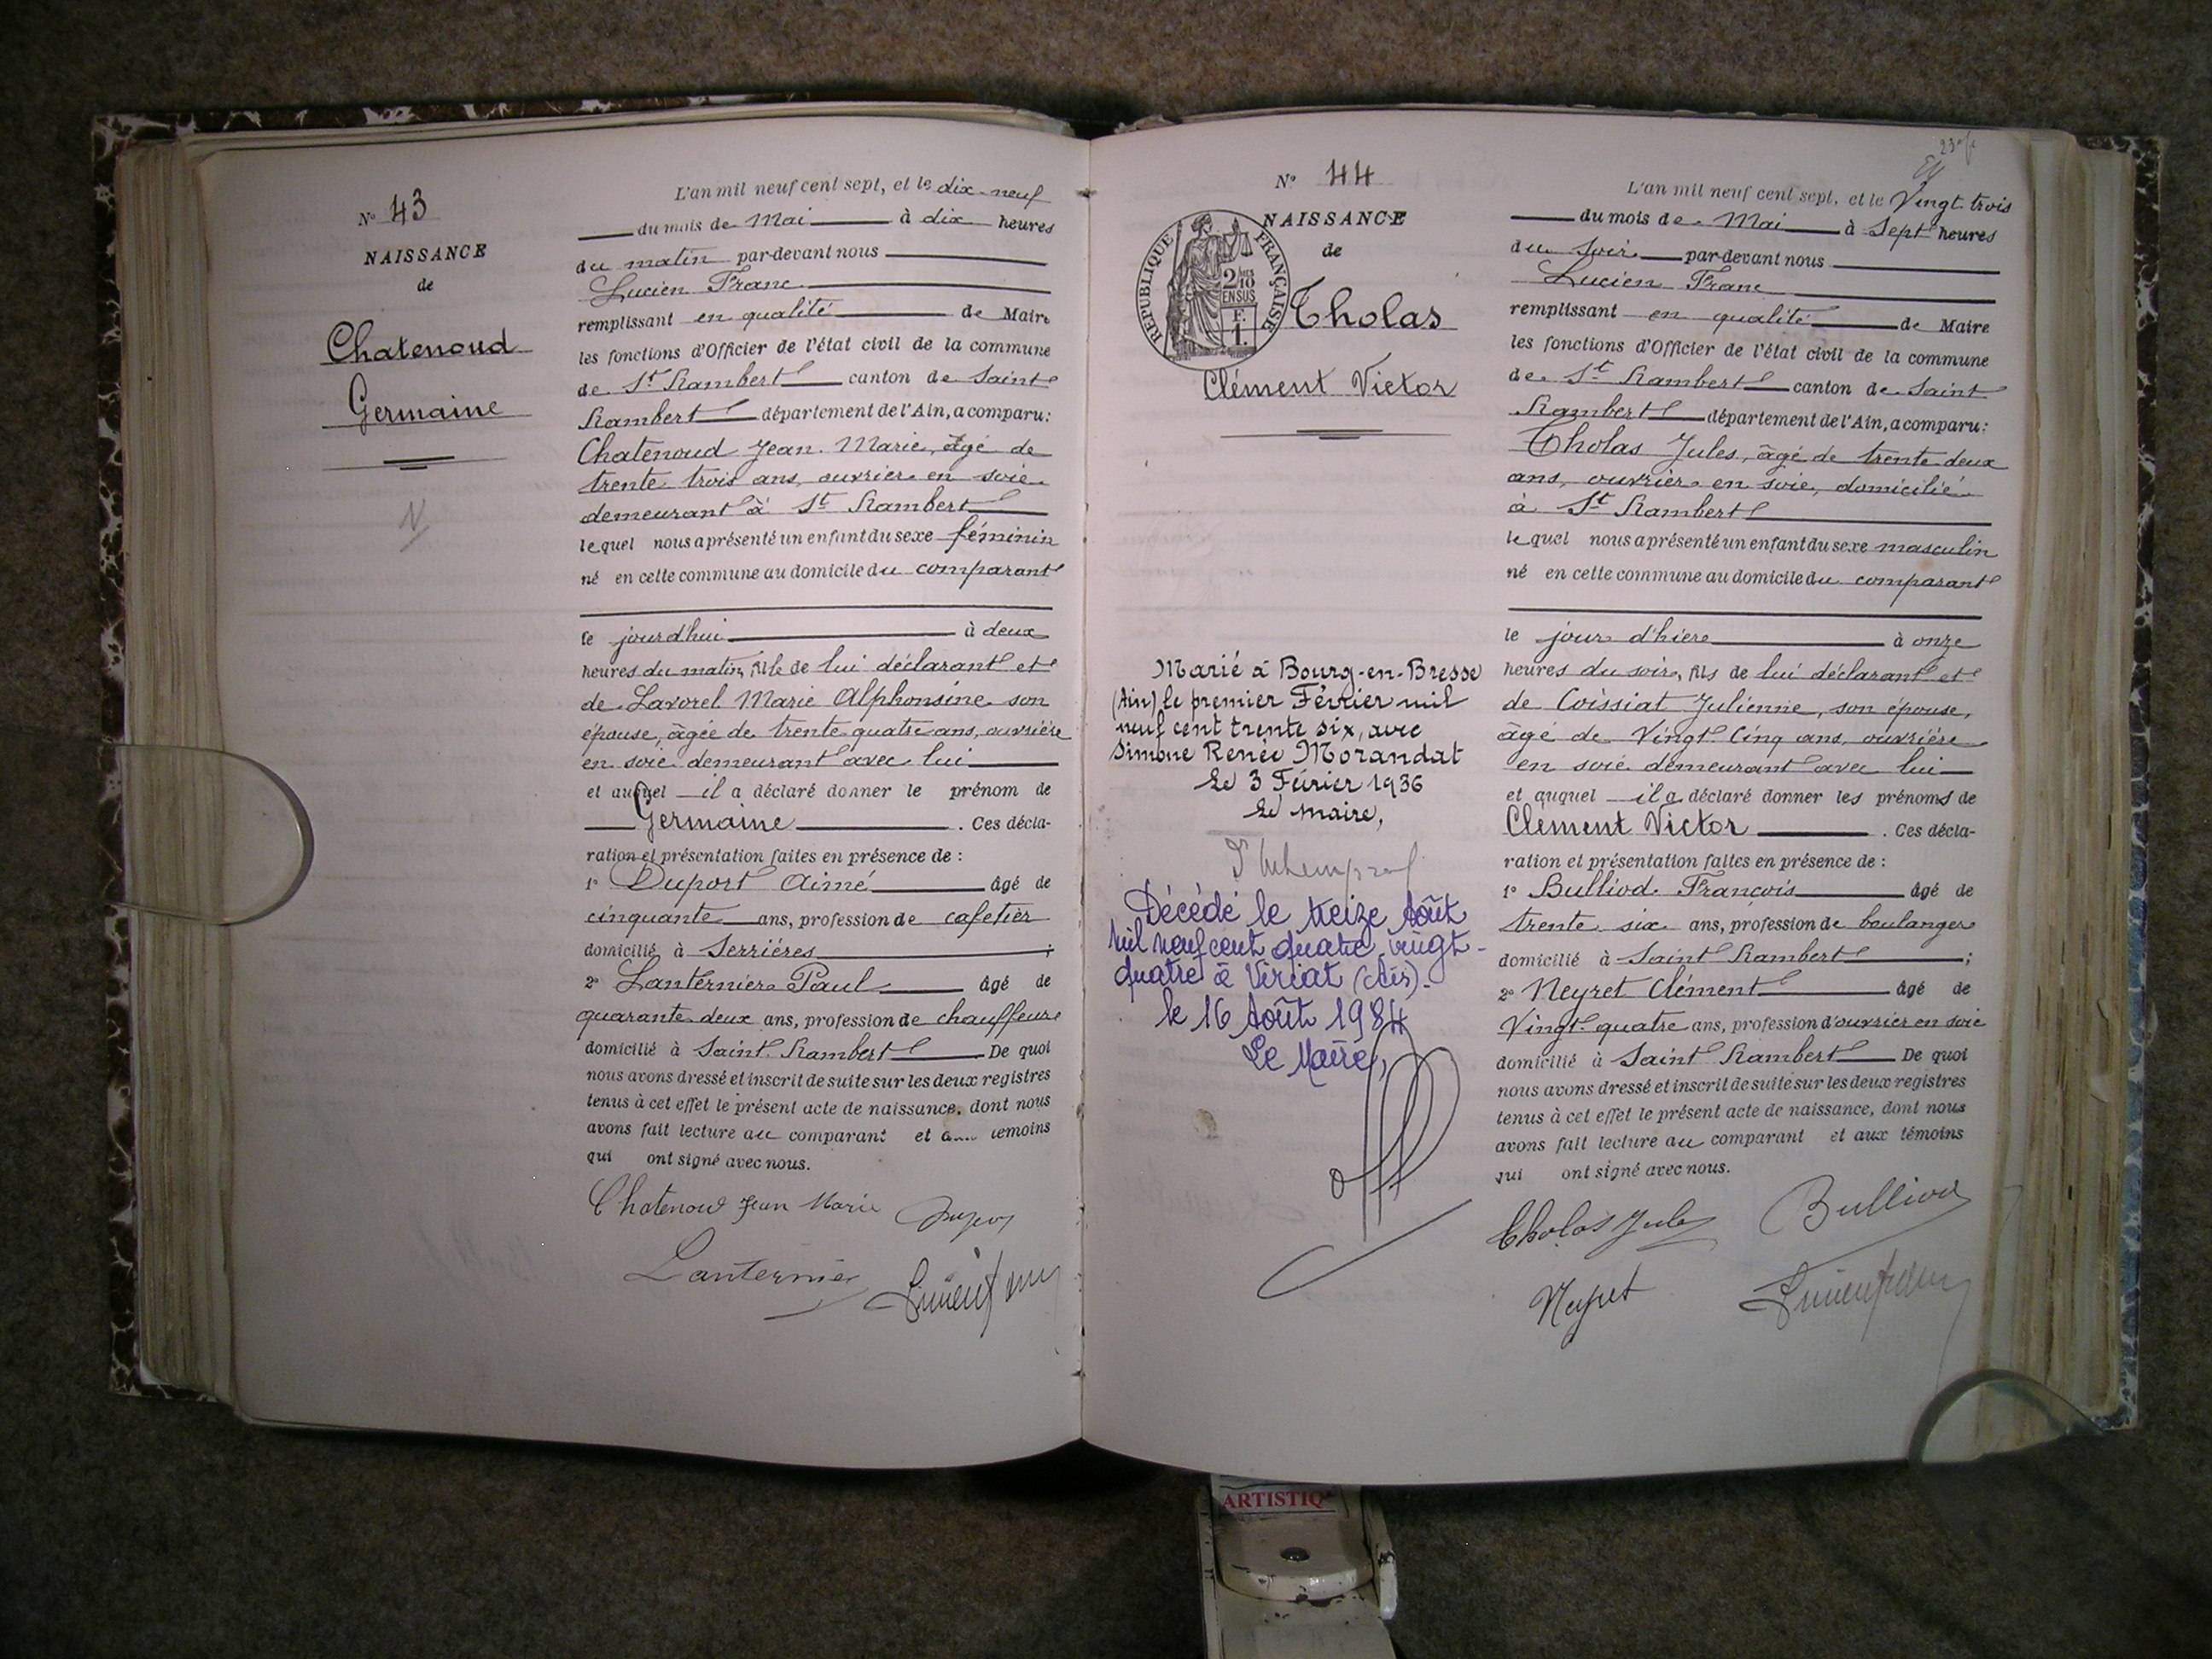 N° 43
NAISSANCE
de
Chatenoud
Germaine
N
L'an mil neuf cent sept, et le dix-neuf
du mois de Mai à dix heures
du matin par-devant nous
Lucien Franc
remplissant en qualité de Maire
les fonctions d'Officier de l'état civil de la commune
de St Rambert canton de Saint
Rambert département de l'Ain, a comparu:
Chatenoud Jean Marie, âgé de
trente trois ans, ouvrier en soie
demeurant à St Rambert
lequel nous a présenté un enfant du sexe féminin
né en cette commune au domicile du comparant
le jourd'hui à deux
heures du matin, fille de lui déclarant et
de Lavorel Marie Alphonsine son
épouse, âgée de trente quatre ans, ouvrière
en soie demeurant avec lui
et auquel il a déclaré donner le prénom de
Germaine . Ces décla-
ration et présentation faites en présence de :
1° Duport Aimé âgé de
cinquante ans, profession de cafetier
domicilié à Serrières ;
2° Lanternier Paul âgé de
quarante deux ans, profession de chauffeur
domicilié à Saint Rambert De quoi
nous avons dressé et inscrit de suite sur les deux registres
tenus à cet effet le présent acte de naissance, dont nous
avons fait lecture au comparant et aux témoins
qui ont signé avec nous.
Chatenoud Jean Marie Dupor
Lanternier
N° 44
NAISSANCE
de
RÉPUBLIQUE FRANÇAISE
2/10
EN SUS
F.
1.
Tholas
Clément Victor
Marié à Bourg-en-Bresse
(Ain) le premier Février mil
neuf cent trente six, avec
Simone Renée Morandat
Le 3 Février 1936
Le maire,
Décédé le treize Août
mil neuf cent quatre-vingt-
quatre à Viriat (Ain).
le 16 Août 1984
Le Maire,
L'an mil neuf cent sept, et le Vingt trois
du mois de Mai à Sept heures
du soir par-devant nous
Lucien Franc
remplissant en qualité de Maire
les fonctions d'Officier de l'état civil de la commune
de St Rambert canton de Saint
Rambert département de l'Ain, a comparu:
Tholas Jules, âgé de trente deux
ans, ouvrier en soie, domicilié
à St Rambert
lequel nous a présenté un enfant du sexe masculin
né en cette commune au domicile du comparant
le jour d'hier à onze
heures du soir, fils de lui déclarant et
de Coissiat Julienne, son épouse,
âgé de Vingt Cinq ans, ouvrière
en soie demeurant avec lui
et auquel il a déclaré donner les prénoms de
Clément Victor . Ces décla-
ration et présentation faites en présence de :
1° Bulliod François âgé de
trente six ans, profession de boulanger
domicilié à Saint Rambert ;
2° Neyret Clément âgé de
Vingt quatre ans, profession d'ouvrier en soie
domicilié à Saint Rambert De quoi
nous avons dressé et inscrit de suite sur les deux registres
tenus à cet effet le présent acte de naissance, dont nous
avons fait lecture au comparant et aux témoins
qui ont signé avec nous.
Tholas Jules Bulliod
Neyret
ARTISTIQ